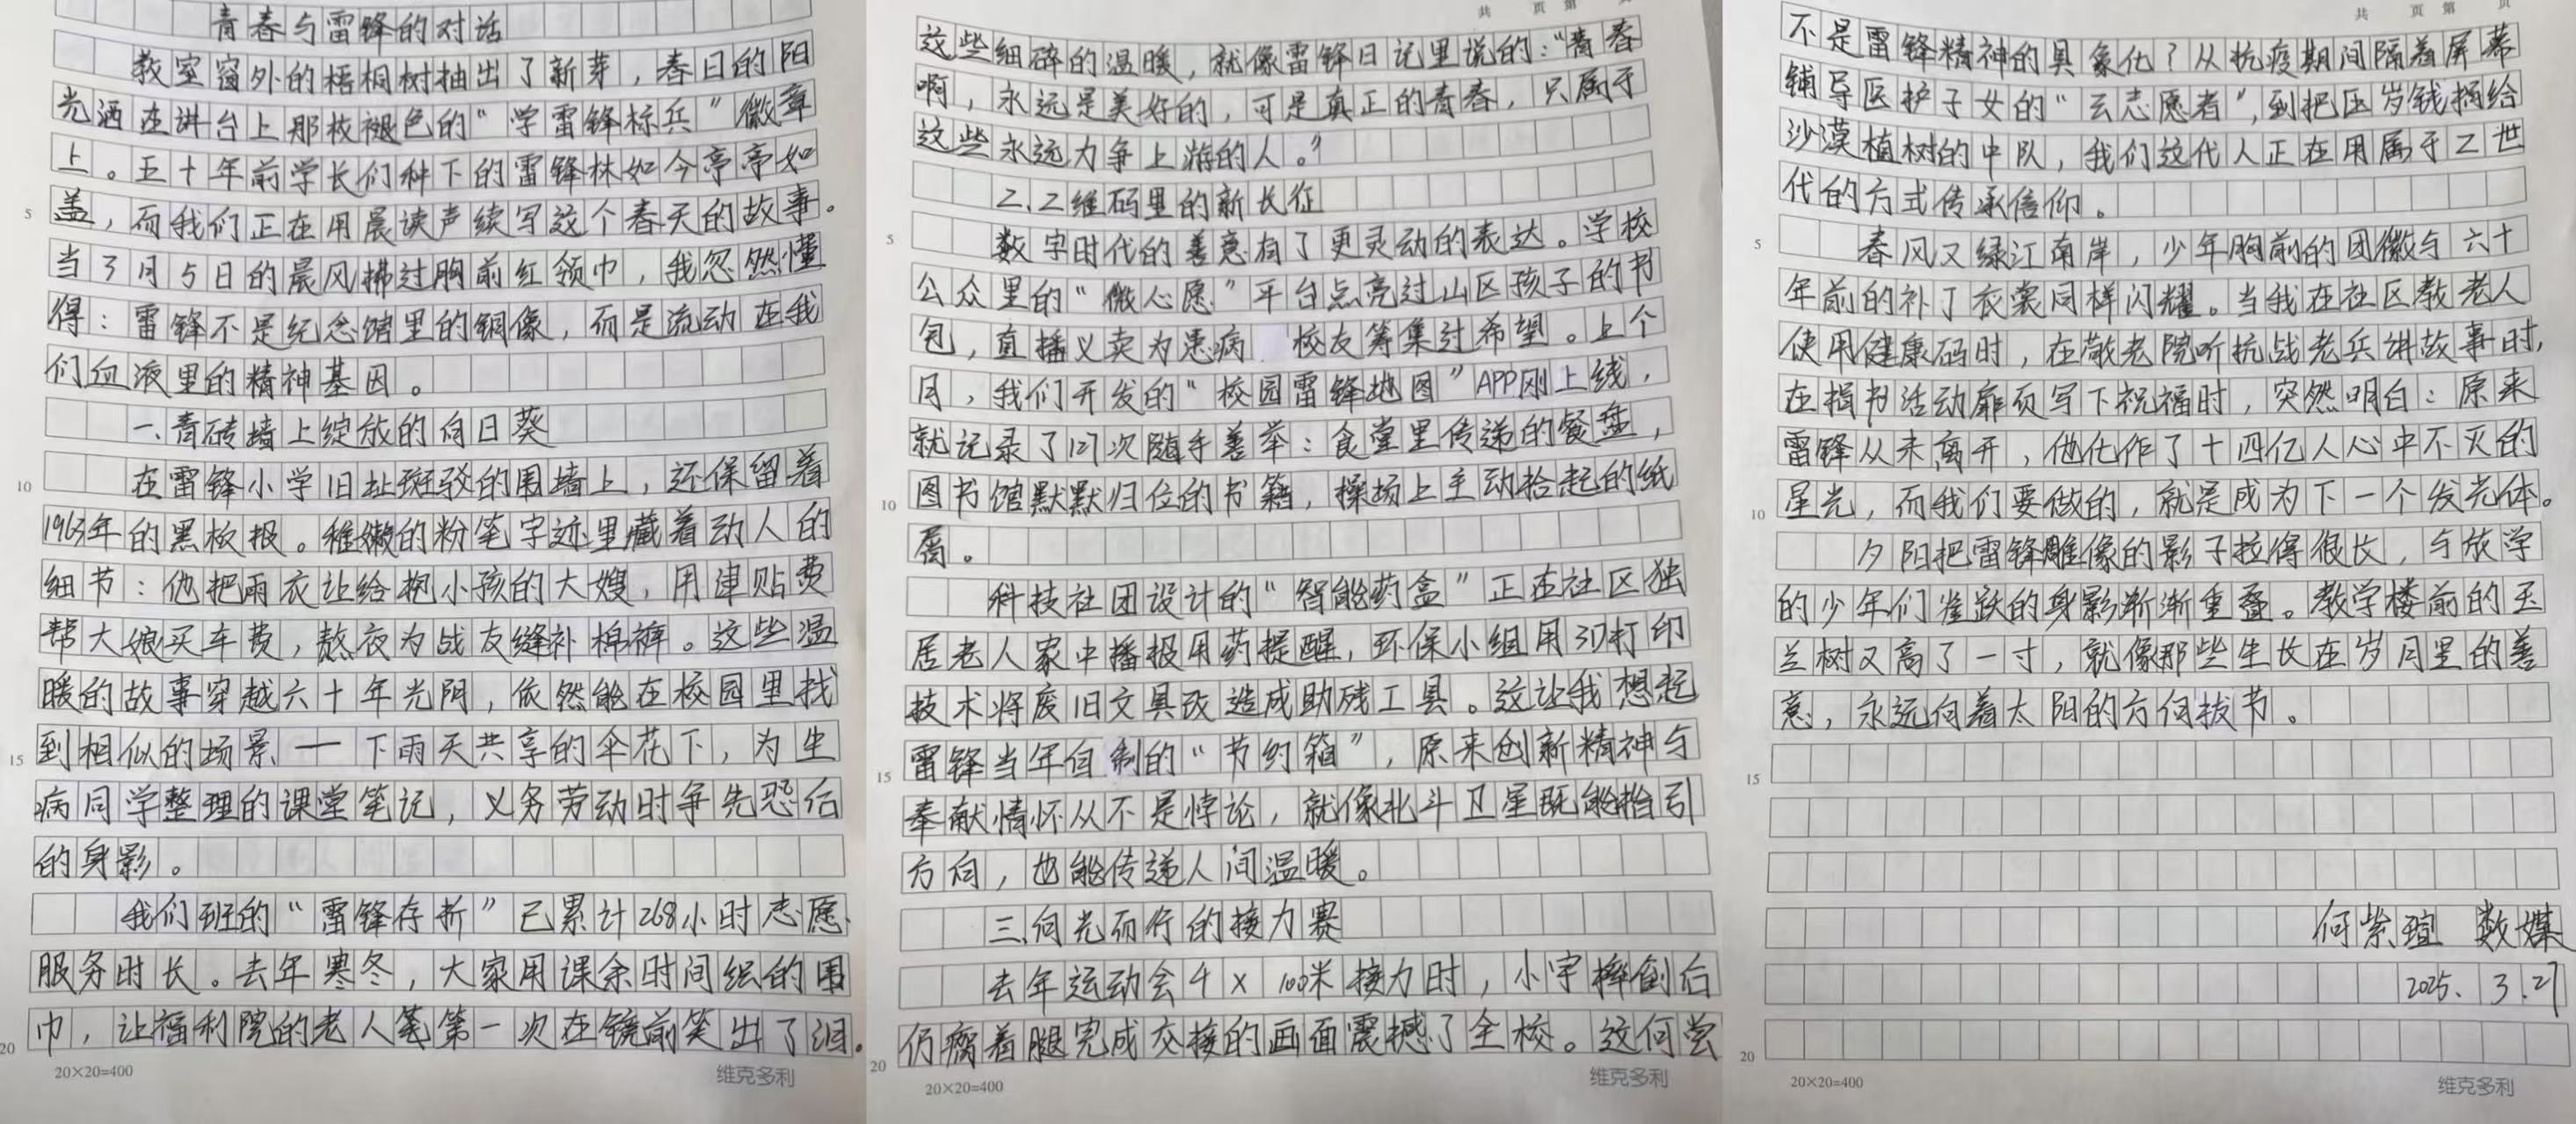 青春与雷锋的对话
教室窗外的梧桐树抽出了新芽，春日的阳
光洒在讲台上那枚褪色的“学雷锋标兵”徽章
上。五十年前学长们种下的雷锋林如今亭亭如
盖，而我们正在用晨读声续写这个春天的故事。
当3月5日的晨风拂过胸前红领巾，我忽然懂
得：雷锋不是纪念馆里的铜像，而是流动在我
们血液里的精神基因。
一、青砖墙上绽放的向日葵
在雷锋小学旧址斑驳的围墙上，还保留着
1963年的黑板报。稚嫩的粉笔字迹里藏着动人的
细节：他把雨衣让给抱小孩的大嫂，用津贴费
帮大娘买车费，熬夜为战友缝补棉裤。这些温
暖的故事穿越六十年光阴，依然能在校园里找
到相似的场景一下雨天共享的伞花下，为生
病同学整理的课堂笔记，义务劳动时争先恐后
的身影。
我们班的“雷锋存折”已累计268小时志愿
服务时长。去年寒冬，大家用课余时间织的围
巾，让福利院的老人第一次在镜前笑出了泪。
20×20=400
维克多利
共 页 第 页
这些细碎的温暖，就像雷锋日记里说的：“青春
啊，永远是美好的，可是真正的青春，只属于
这些永远力争上游的人。”
二、二维码里的新长征
数字时代的善意有了更灵动的表达。学校
公众里的“微心愿”平台点亮过山区孩子的书
包，直播义卖为患病 校友筹集过希望。上个
月，我们开发的“校园雷锋地图”APP刚上线，
就记录了127次随手善举：食堂里传递的餐盘，
图书馆默默归位的书籍，操场上主动拾起的纸
屑。
科技社团设计的“智能药盒”正在社区独
居老人家中播报用药提醒，环保小组用3D打印
技术将废旧文具改造成助残工具。这让我想起
雷锋当年自制的“节约箱”，原来创新精神与
奉献情怀从不是悖论，就像北斗卫星既能指引
方向，也能传递人间温暖。
三、向光而行的接力赛
去年运动会4×100米接力时，小宇摔倒后
仍瘸着腿完成交接的画面震撼了全校。这何尝
20×20=400
维克多利
共 页 第 页
不是雷锋精神的具象化？从抗疫期间隔着屏幕
辅导医护子女的“云志愿者”，到把压岁钱捐给
沙漠植树的中队，我们这代人正在用属于Z世
代的方式传承信仰。
春风又绿江南岸，少年胸前的团徽与六十
年前的补丁衣裳同样闪耀。当我在社区教老人
使用健康码时，在敬老院听抗战老兵讲故事时，
在捐书活动扉页写下祝福时，突然明白：原来
雷锋从未离开，他化作了十四亿人心中不灭的
星光，而我们要做的，就是成为下一个发光体。
夕阳把雷锋雕像的影子拉得很长，与放学
的少年们雀跃的身影渐渐重叠。教学楼前的玉
兰树又高了一寸，就像那些生长在岁月里的善
意，永远向着太阳的方向拔节。
何紫瑄 数媒
2025.3.27
20×20=400
维克多利